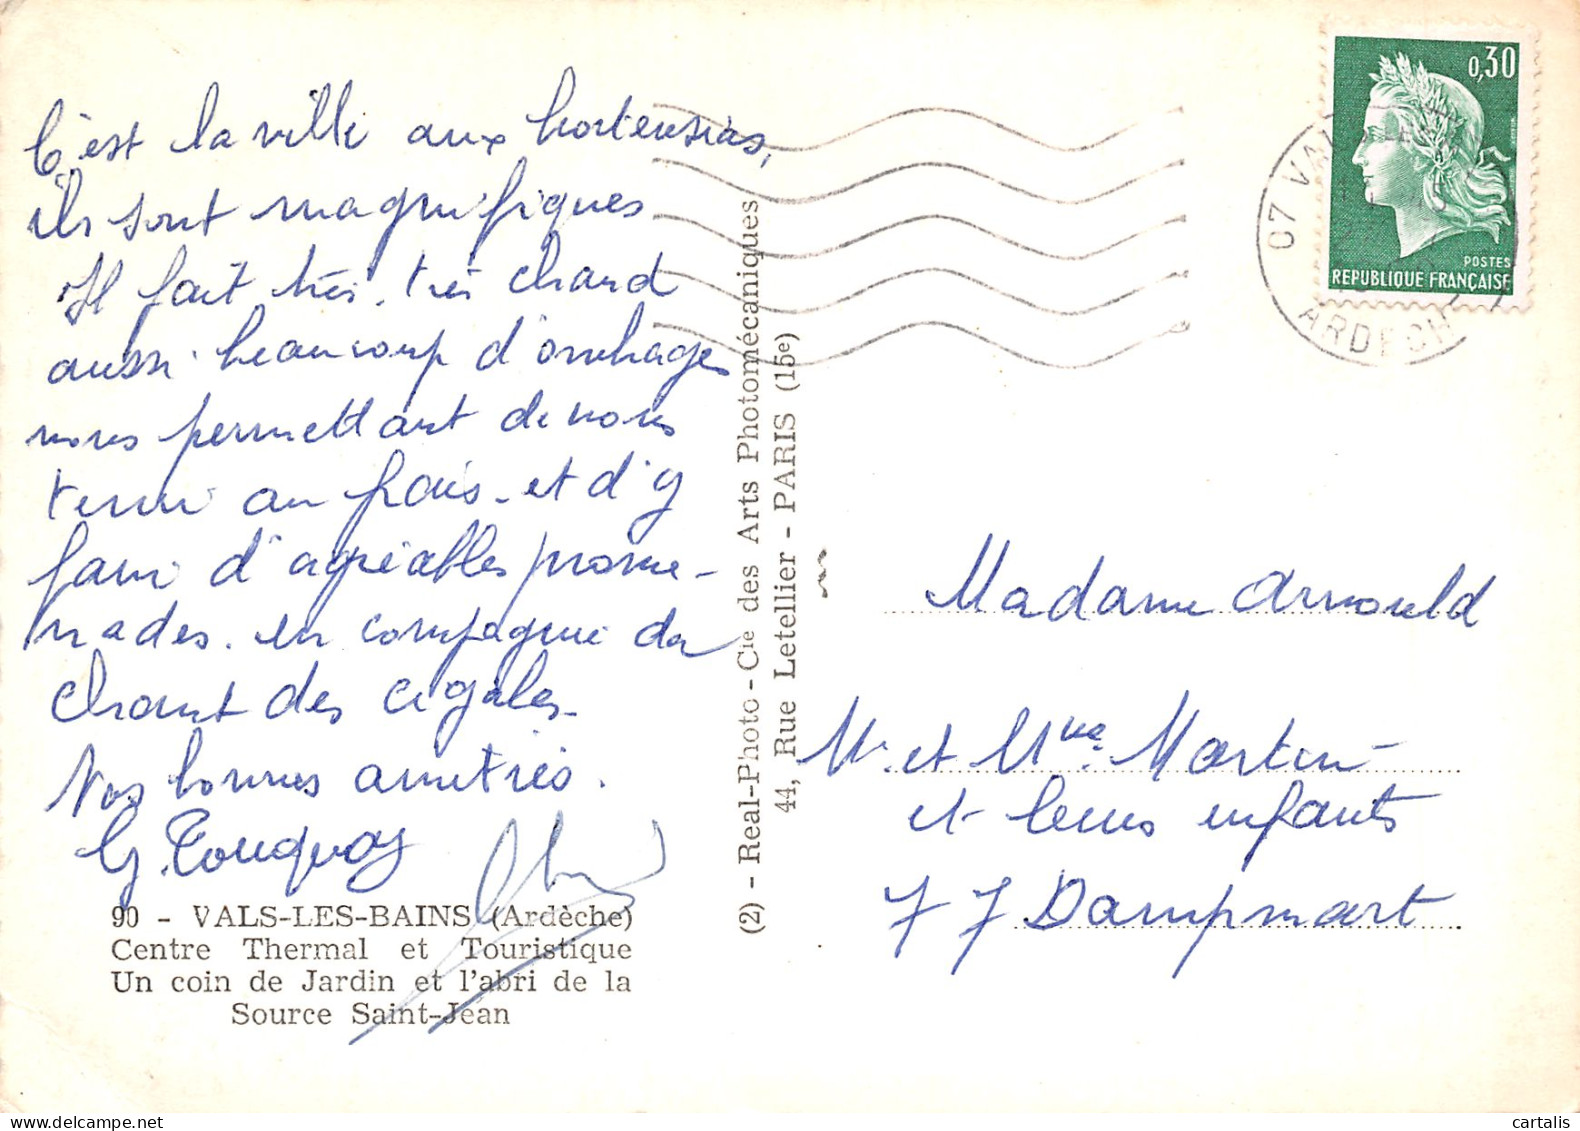 C'est la ville aux hortensias,
ils sont magnifiques
Il fait très, très chaud
aussi beaucoup d'ombrages
nous permettant de nous
tenir au frais - et d'y
faire d'agréables prome-
nades. en compagnie du
chant des cigales -
Nos bonnes amitiés.
G. Touquoy
90 - VALS-LES-BAINS (Ardèche)
Centre Thermal et Touristique
Un coin de Jardin et l'abri de la
Source Saint-Jean
(2) - Real-Photo - Cie des Arts Photomécaniques
44, Rue Letellier - PARIS (15e)
0,30
POSTES
REPUBLIQUE FRANÇAISE
07 VALS
ARDECHE
Madame Arnould
M. et Mme Martin -
et leurs enfants
77 Dampmart
cartalis